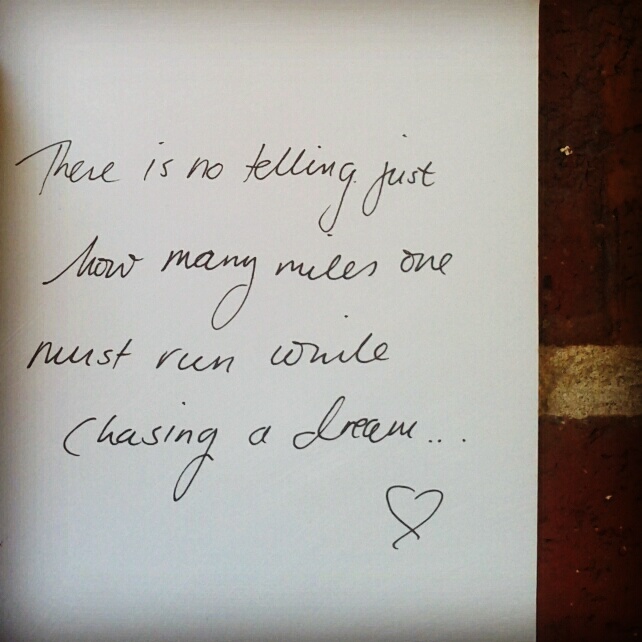 There is no telling just
how many miles one
must run while
chasing a dream...